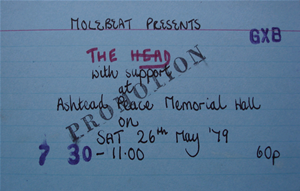 MOLEBEAT PRESENTS
GXB
THE HEAD
with support
at
PROMOTION
Ashtead Peace Memorial Hall
on
SAT 26th May '79
7 30 - 11:00 60p